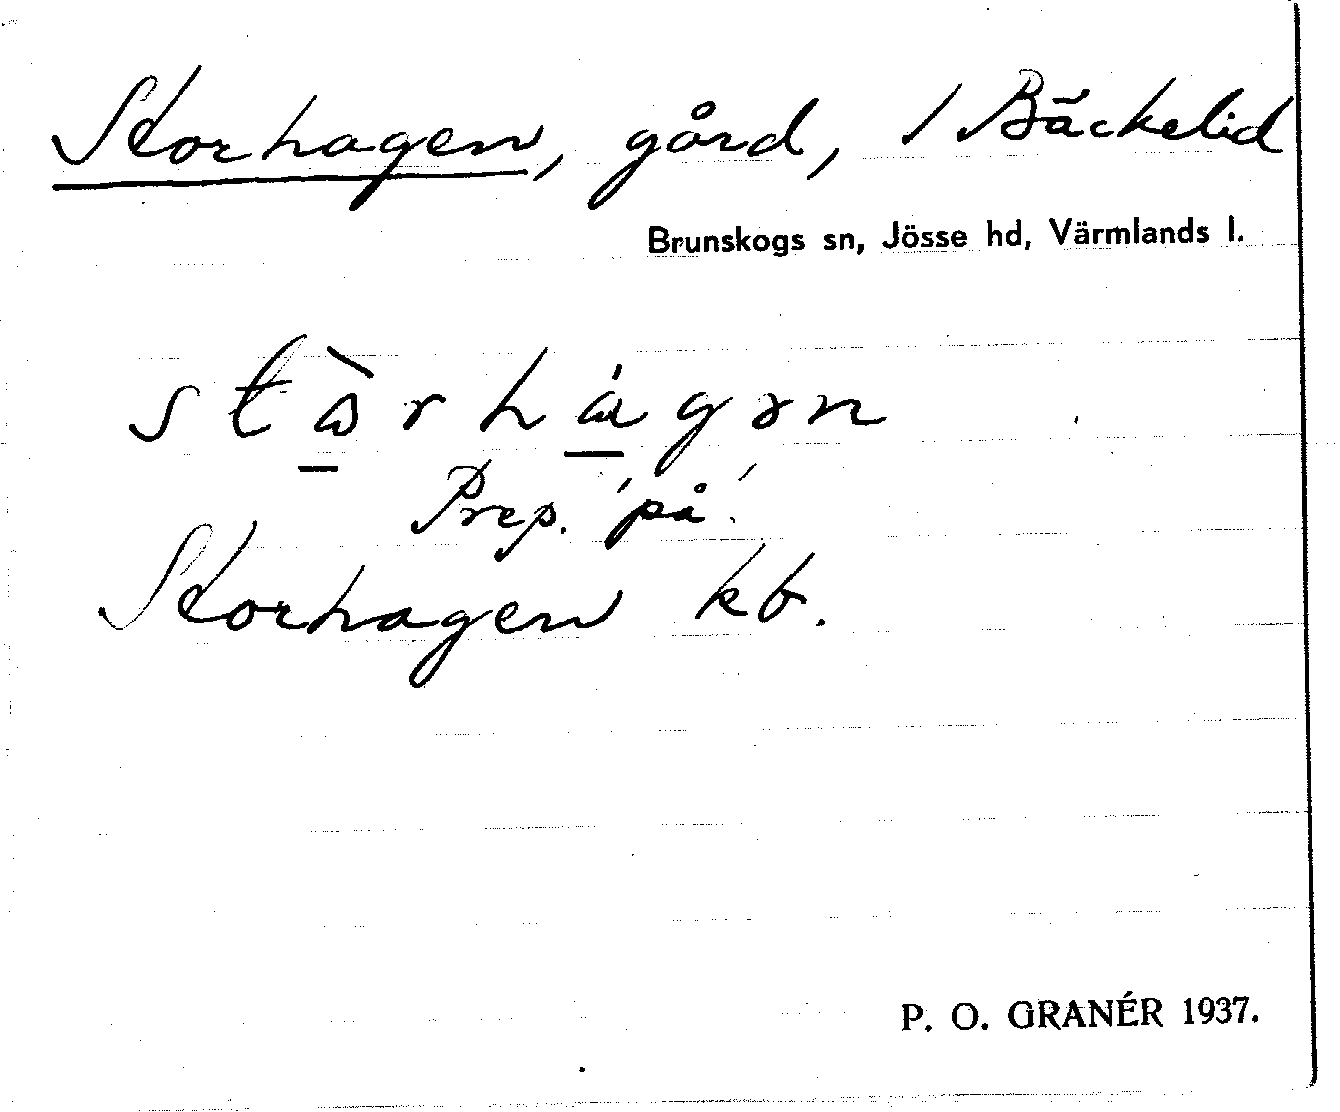 Storhagen, gård, 1 Bäckelid
Brunskogs sn, Jösse hd, Värmlands l.
Prep. 'på'.
Storhagen kb.
P. O. GRANÉR 1937.